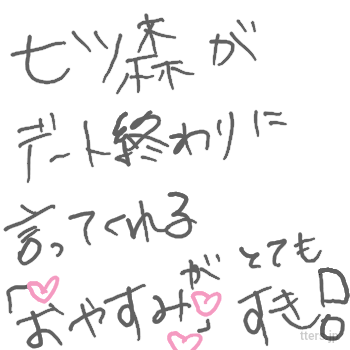 七ツ森が
デート終わりに
言ってくれる
「おやすみ」が
とても
すき!